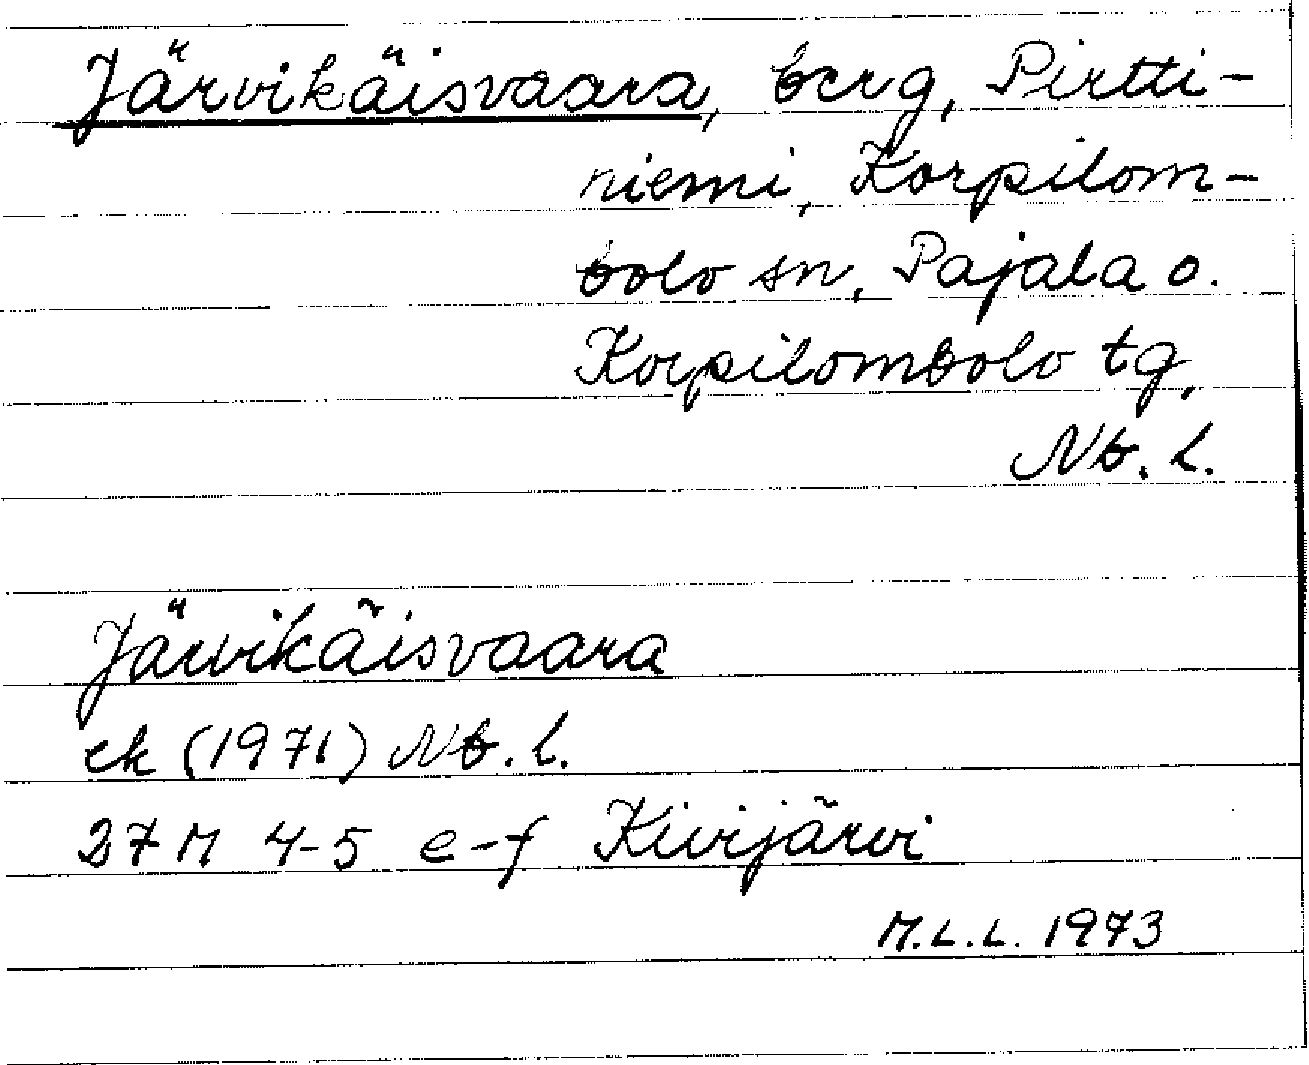 Järvikäisvaara, berg, Pirtti-
niemi, Korpilom-
bolo sn, Pajala o.
Korpilombolo tg,
Nb. l.
Järvikäisvaara
ek (1971) Nb. l.
27 M 4-5 e-f Kivijärvi
M.L.L. 1973